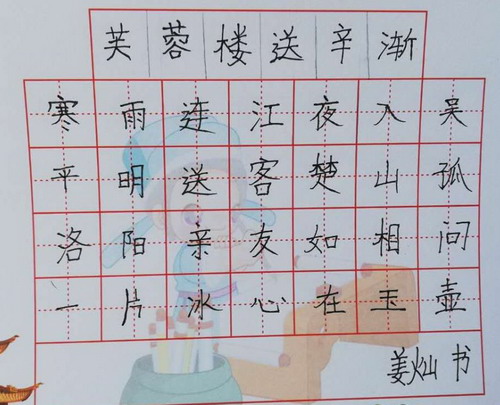 芙蓉楼送辛渐
寒雨连江夜入吴
平明送客楚山孤
洛阳亲友如相问
一片冰心在玉壶
姜灿书